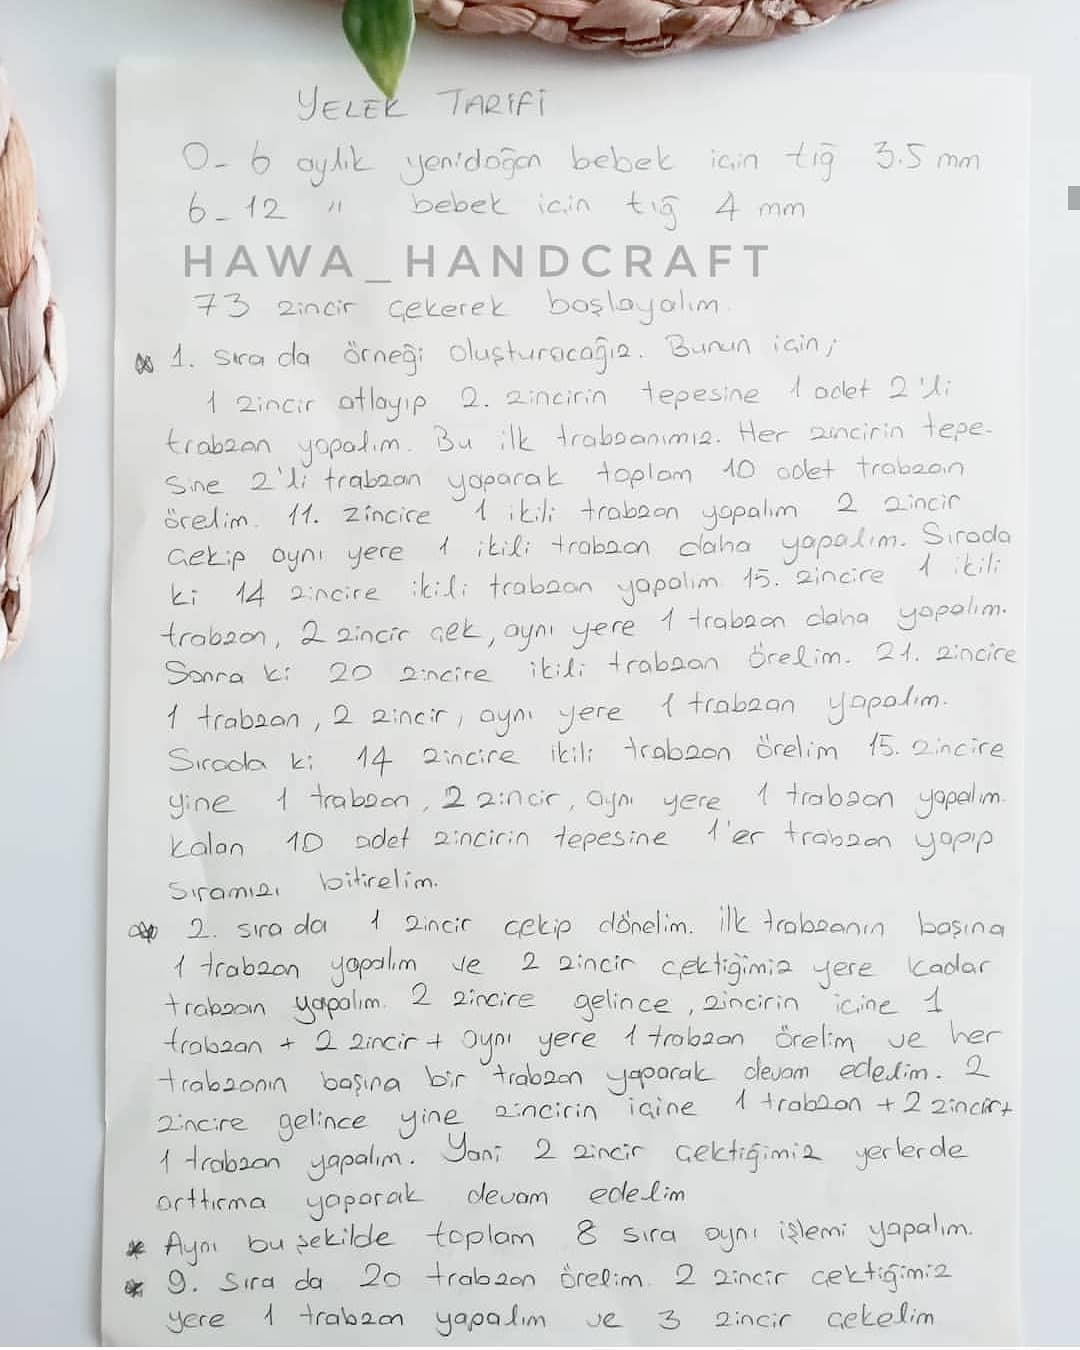 YELEK TARİFİ
0-6 aylık yenidoğan bebek için tığ 3.5 mm
6-12 " bebek için tığ 4 mm
HAWA_HANDCRAFT
73 zincir çekerek başlayalım.
* 1. sıra da örneği oluşturacağız. Bunun için;
1 zincir atlayıp 2. zincirin tepesine 1 adet 2'li
trabzan yapalım. Bu ilk trabzanımız. Her zincirin tepe-
sine 2'li trabzan yaparak toplam 10 adet trabzan
örelim. 11. zincire 1 ikili trabzan yapalım 2 zincir
çekip aynı yere 1 ikili trabzan daha yapalım. Sırada
ki 14 zincire ikili trabzan yapalım. 15. zincire 1 ikili
trabzan, 2 zincir çek, aynı yere 1 trabzan daha yapalım.
Sonra ki 20 zincire ikili trabzan örelim. 21. zincire
1 trabzan, 2 zincir, aynı yere 1 trabzan yapalım.
Sırada ki 14 zincire ikili trabzan örelim 15. zincire
yine 1 trabzan, 2 zincir, aynı yere 1 trabzan yapalım.
kalan 10 adet zincirin tepesine 1'er trabzan yapıp
sıramızı bitirelim.
* 2. sıra da 1 zincir çekip dönelim. ilk trabzanın başına
1 trabzan yapalım ve 2 zincir çektiğimiz yere kadar
trabzan yapalım. 2 zincire gelince, zincirin içine 1
trabzan + 2 zincir + aynı yere 1 trabzan örelim ve her
trabzanın başına bir trabzan yaparak devam edelim. 2
zincire gelince yine zincirin içine 1 trabzan + 2 zincir+
1 trabzan yapalım. Yani 2 zincir çektiğimiz yerlerde
arttırma yaparak devam edelim
* Aynı bu şekilde toplam 8 sıra aynı işlemi yapalım.
* 9. Sıra da 20 trabzan örelim. 2 zincir çektiğimiz
yere 1 trabzan yapalım ve 3 zincir çekelim